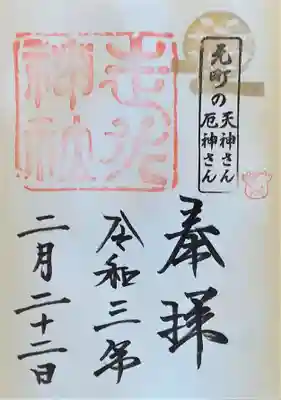 元町の
天神さん
厄神さん
奉拝
走水
神社
令和三年
二月二十二日